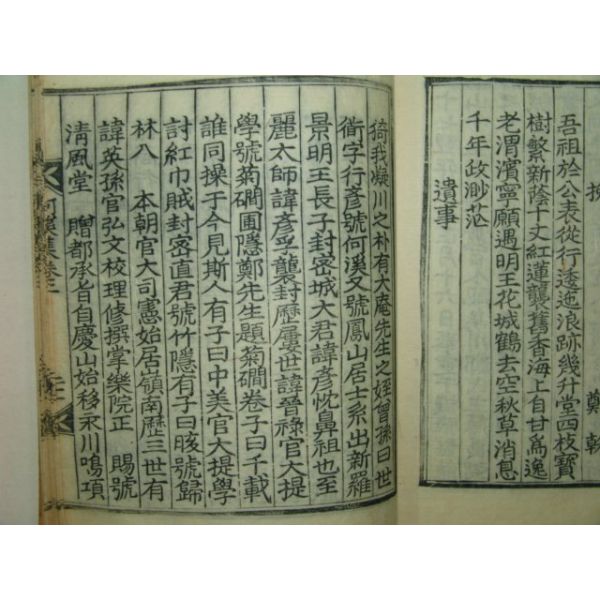 挽 鄭
吾祖於公表從行逶迤浪跡幾升堂四枝寶
樹繁新蔭十丈紅蓮襲舊香海上自甘爲逸
老渭濱寧願遇明王花城鶴去空秋草消息
千年政渺茫
遺事
猗我凝川之朴有大庵先生之姪曾孫曰世
衡字行彥號何溪又號鳳山居士系出新羅
景明王長子封密城大君諱彥忱鼻祖也至
麗太師諱彥孚襲封歷屢世諱晉祿官大提
學號菊磵圃隱鄭先生題菊磵卷子曰千載
誰同操于今見斯人有子曰中美官大提學
討紅巾賊封密直君號竹隱有子曰晐號歸
林八 本朝官大司憲始居嶺南歷三世有
諱英孫官弘文校理修撰掌樂院正 賜號
淸風堂 贈都承旨自慶山始移永川鳴項